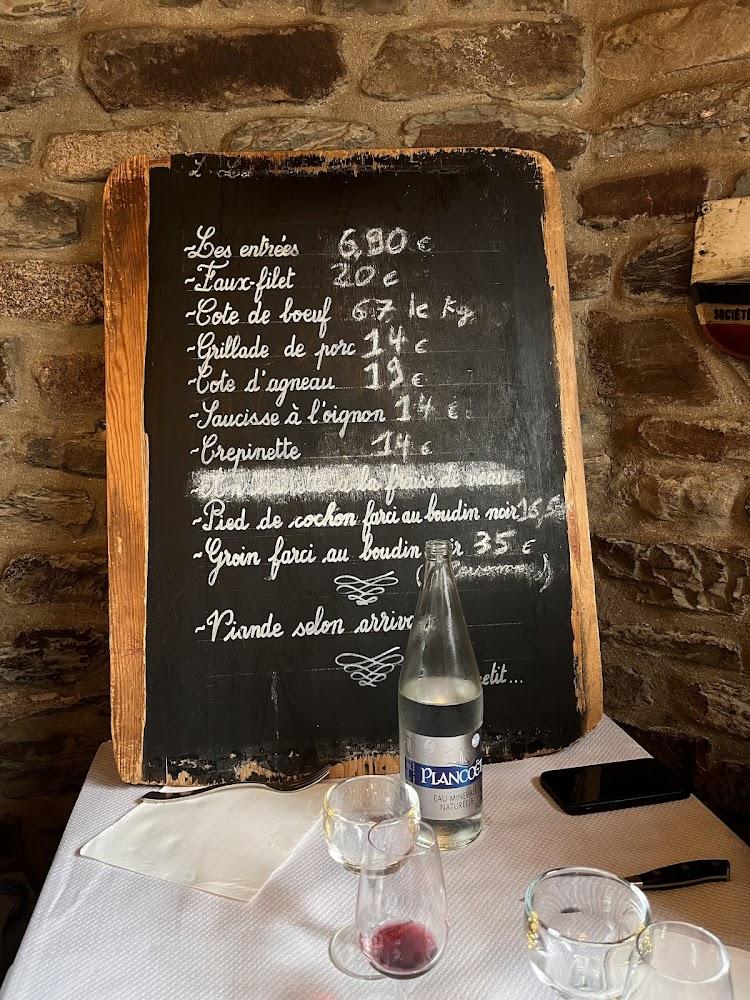 ~Les entrées 6,90 €
~Faux-filet 20 €
~Cote de boeuf 67 le Kg
~Grillade de porc 14 €
~Cote d'agneau 19 €
~Saucisse à l'oignon 14 €
~Crepinette 14 €
à la fraise de veau
~Pied de cochon farci au boudin noir 16,5
~Groin farci au boudin ir 35 €
~Viande selon arriva
etit...
SOCIÉTÉ
PLANCOË
EAU MINÉRALE
NATURELLE